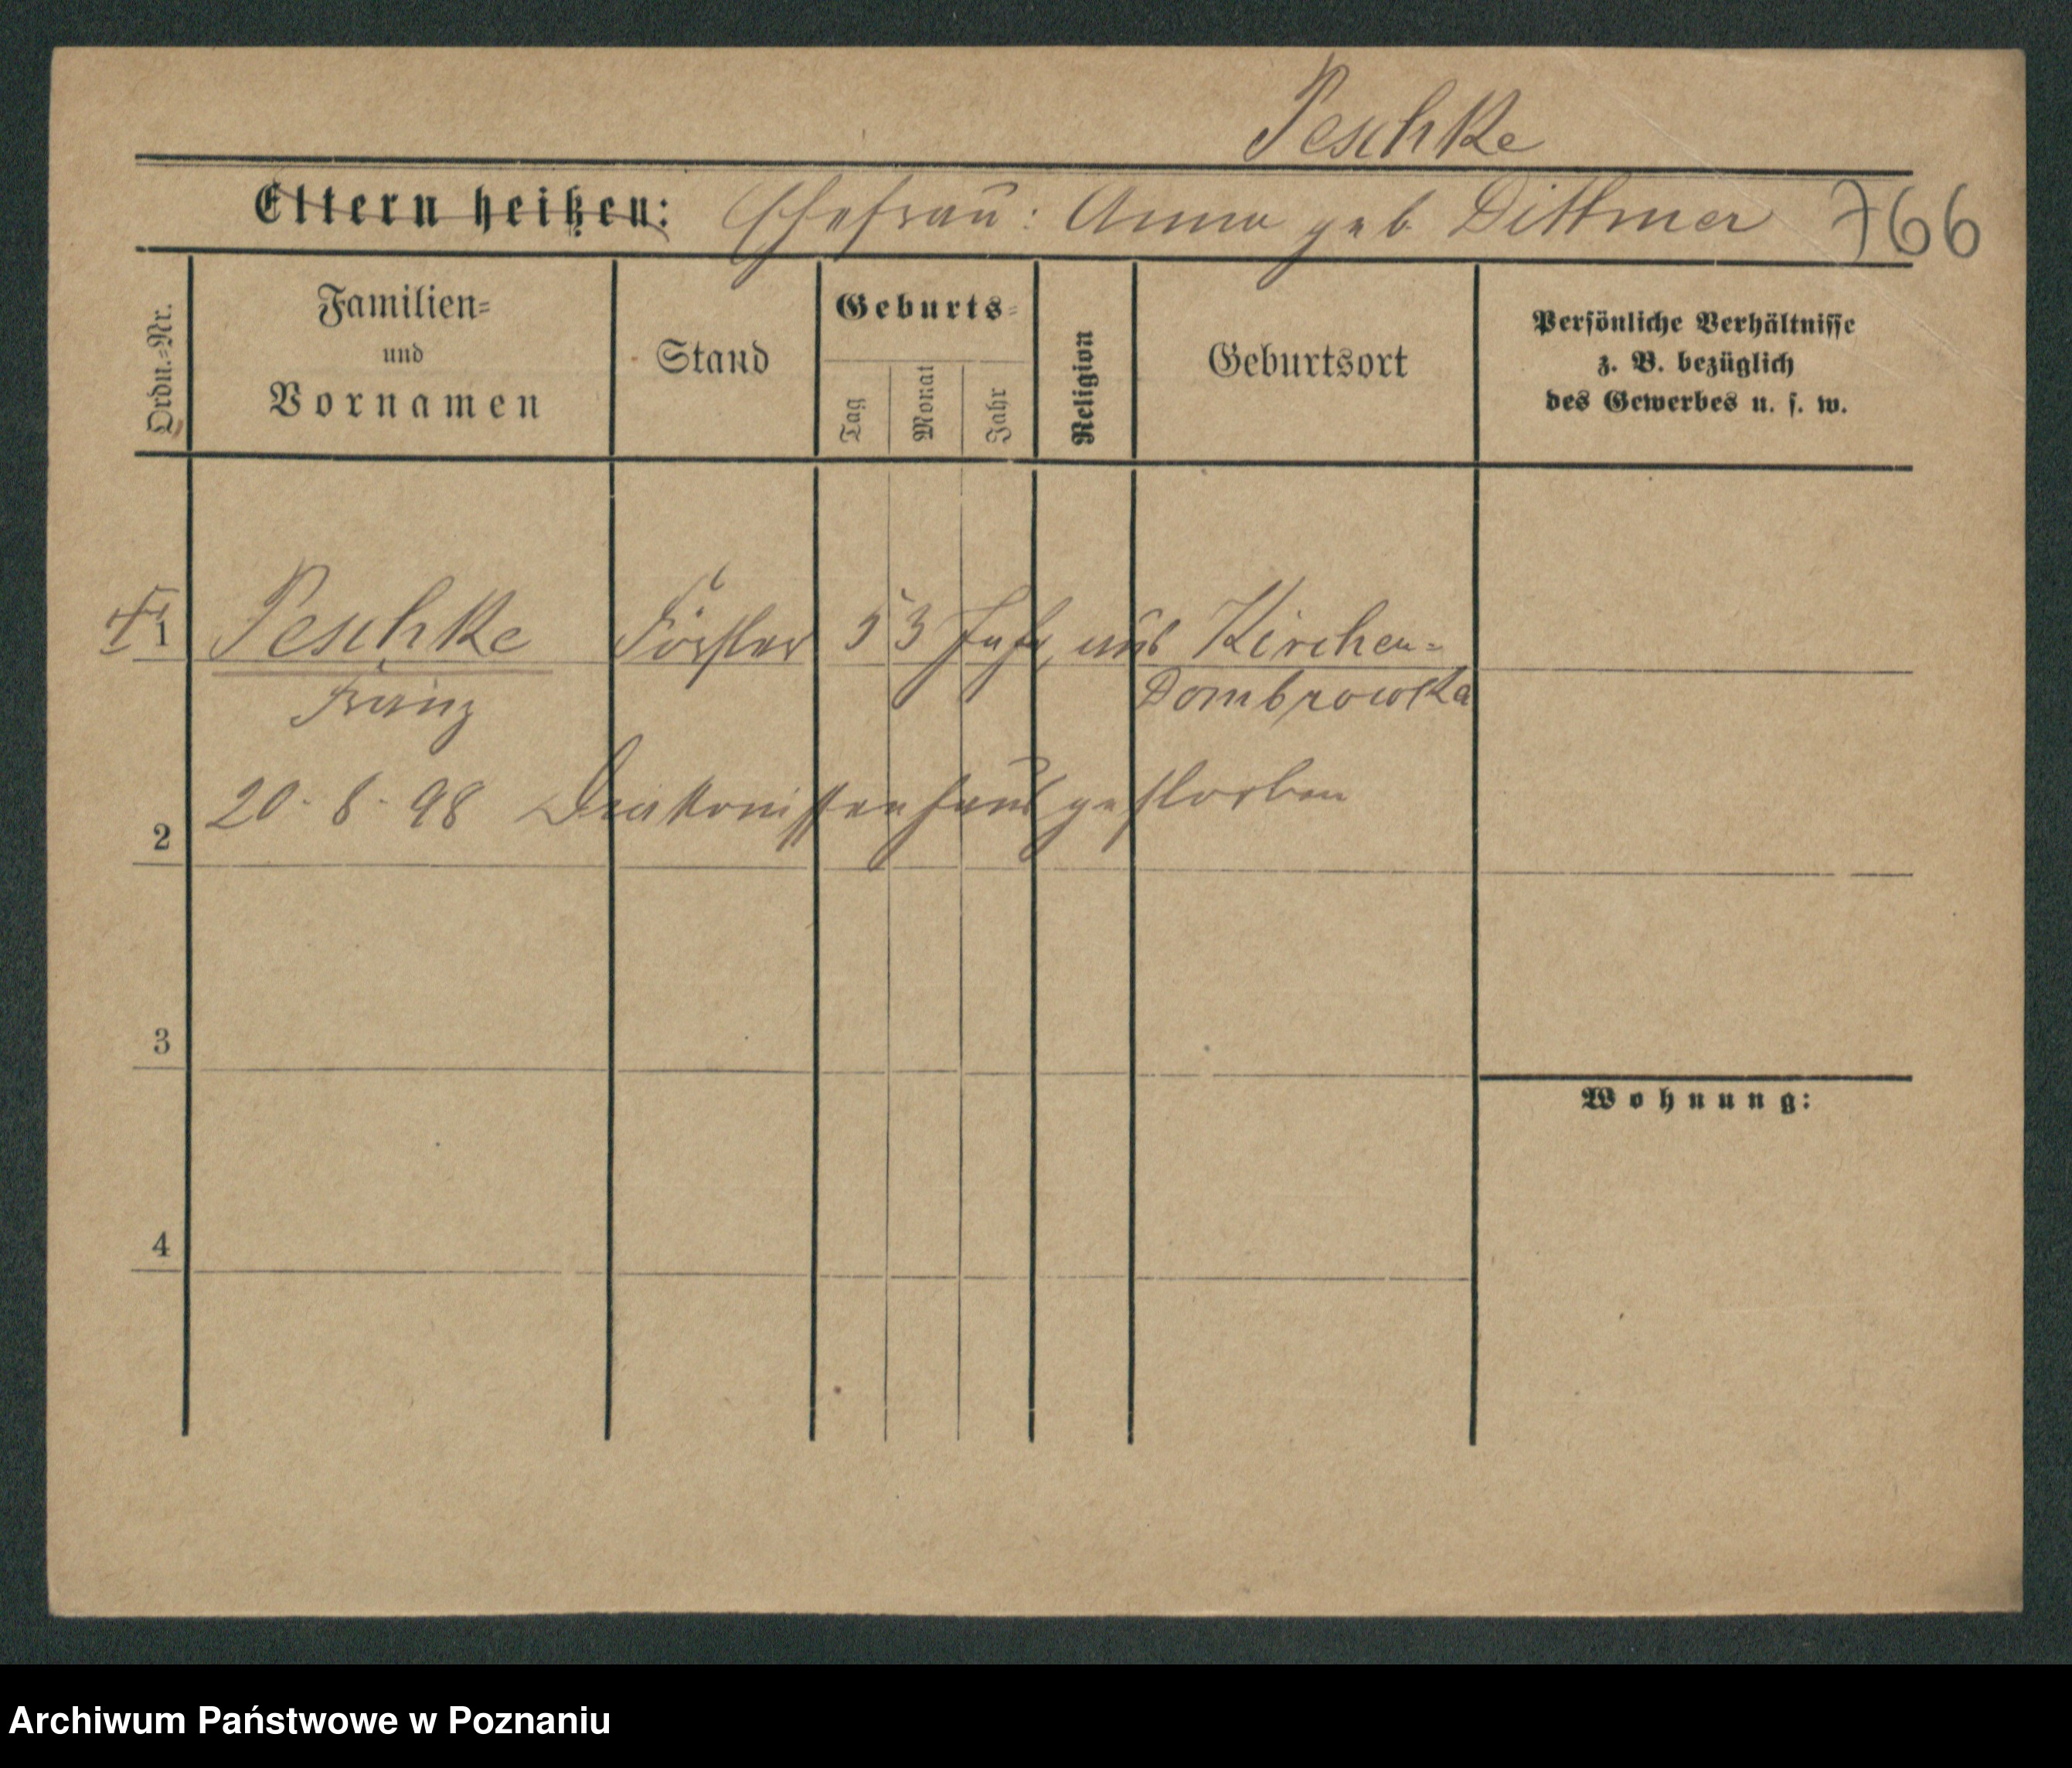 Peschke
Eltern heißen: Ehefrau: Anna geb. Dittmer 766
Ordn.=Nr.
Familien=
und
Vornamen
Stand
Geburts=
Tag
Monat
Jahr
Religion
Geburtsort
Persönliche Verhältnisse
z. B. bezüglich
des Gewerbes u. s. w.
1 Peschke Förster 53 Jahr, aus Kirchen=
Franz Dombrowka
20. 8. 98 Diakonissenhaus gestorben
2
3
Wohnung:
4
Archiwum Państwowe w Poznaniu